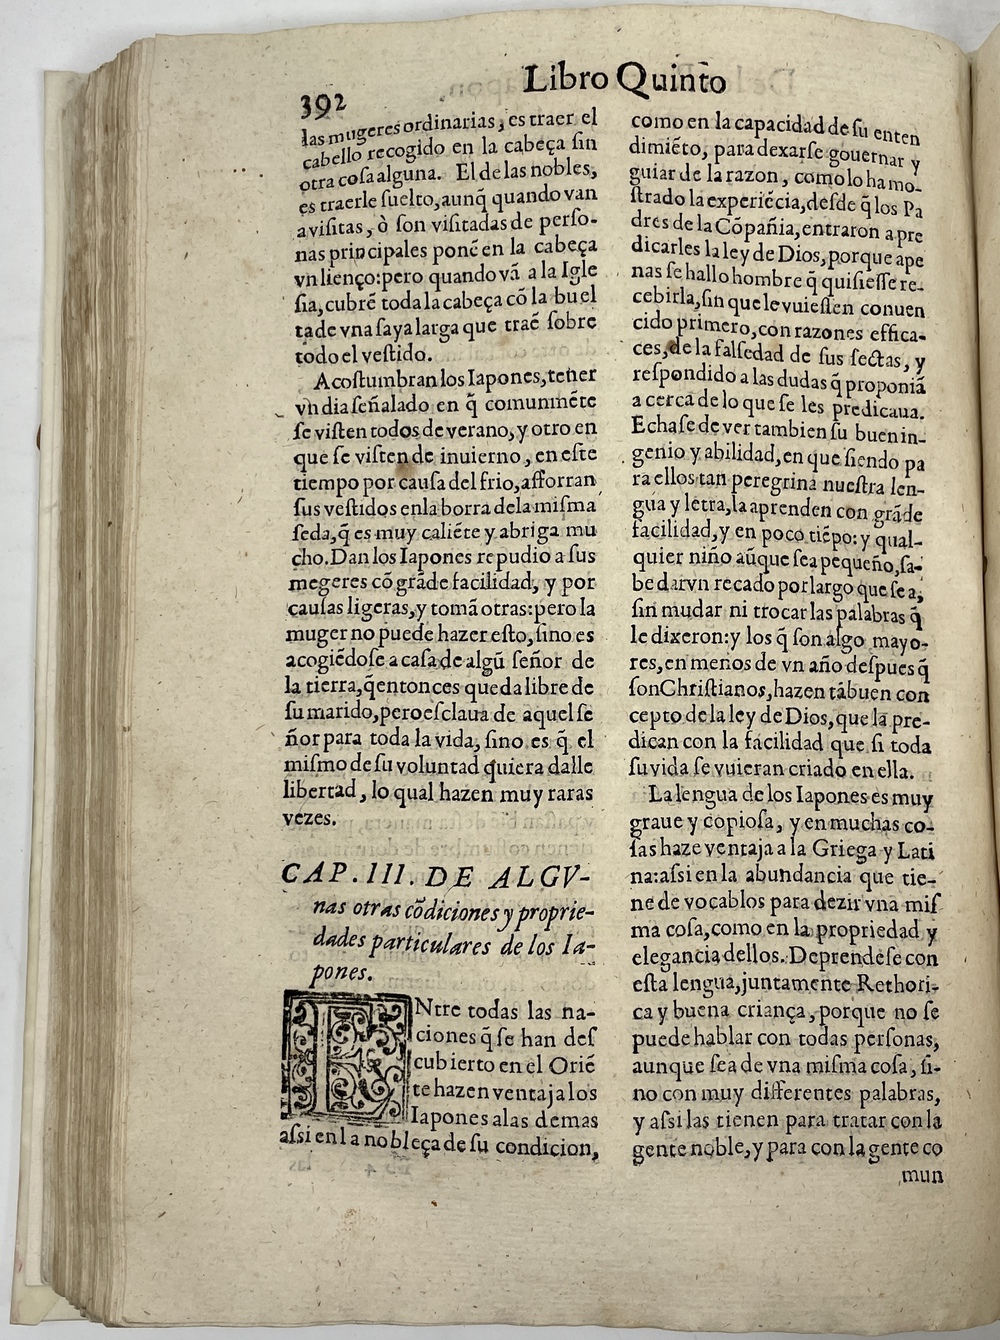 392
Libro Quinto
las mugeres ordinarias, es traer el
cabello recogido en la cabeça ſin
otra coſa alguna. El de las nobles,
es traerle ſuelto, aunq̃ quando van
a viſitas, ò ſon viſitadas de perſo-
nas principales ponẽ en la cabeça
vn lienço: pero quando vã a la Igle
ſia, cubrẽ toda la cabeça cõ la buel
ta de vna ſaya larga que traẽ ſobre
todo el veſtido.
Acoſtumbran los Iapones, tener
vn dia ſeñalado en q̃ comunmẽte
ſe viſten todos de verano, y otro en
que ſe viſten de inuierno, en eſte
tiempo por cauſa del frio, afforran
ſus veſtidos en la borra de la miſma
ſeda, q̃ es muy caliẽte y abriga mu
cho. Dan los Iapones repudio a ſus
megeres cõ grãde facilidad, y por
cauſas ligeras, y tomã otras: pero la
muger no puede hazer eſto, ſino es
acogiẽdoſe a caſa de algũ ſeñor de
la tierra, q̃ entonces queda libre de
ſu marido, pero eſclaua de aquel ſe
ñor para toda la vida, ſino es q̃ el
miſmo de ſu voluntad quiera dalle
libertad, lo qual hazen muy raras
vezes.
CAP. III. DE ALGV-
nas otras cõdiciones y proprie-
dades particulares de los Ia-
pones.
ENtre todas las na-
ciones q̃ ſe han deſ
cubierto en el Oriẽ
te hazen ventaja los
Iapones a las demas
aſsi en la nobleça de ſu condicion,
como en la capacidad de ſu enten
dimiẽto, para dexarſe gouernar y
guiar de la razon, como lo ha mo-
ſtrado la experiẽcia, deſde q̃ los Pa
dres de la Cõpañia, entraron a pre
dicarles la ley de Dios, porque ape
nas ſe hallo hombre q̃ quiſieſſe re-
cebirla, ſin que le vuieſſen conuen
cido primero, con razones effica-
ces, de la falſedad de ſus ſectas, y
reſpondido a las dudas q̃ proponiã
a cerca de lo que ſe les predicaua.
Echaſe de ver tambien ſu buen in-
genio y abilidad, en que ſiendo pa
ra ellos tan peregrina nueſtra len-
gua y letra, la aprenden con grãde
facilidad, y en poco tiẽpo: y qual-
quier niño aũque ſea pequeño, ſa-
be dar vn recado por largo que ſea,
ſin mudar ni trocar las palabras q̃
le dixeron: y los q̃ ſon algo mayo-
res, en menos de vn año deſpues q̃
ſon Chriſtianos, hazen tã buen con
cepto de la ley de Dios, que la pre-
dican con la facilidad que ſi toda
ſu vida ſe vuieran criado en ella.
La lengua de los Iapones es muy
graue y copioſa, y en muchas co-
ſas haze ventaja a la Griega y Lati
na: aſsi en la abundancia que tie-
ne de vocablos para dezir vna miſ
ma coſa, como en la propriedad y
elegancia dellos. Deprendeſe con
eſta lengua, juntamente Rethori-
ca y buena criança, porque no ſe
puede hablar con todas perſonas,
aunque ſea de vna miſma coſa, ſi-
no con muy differentes palabras,
y aſsi las tienen para tratar con la
gente noble, y para con la gente co
mun